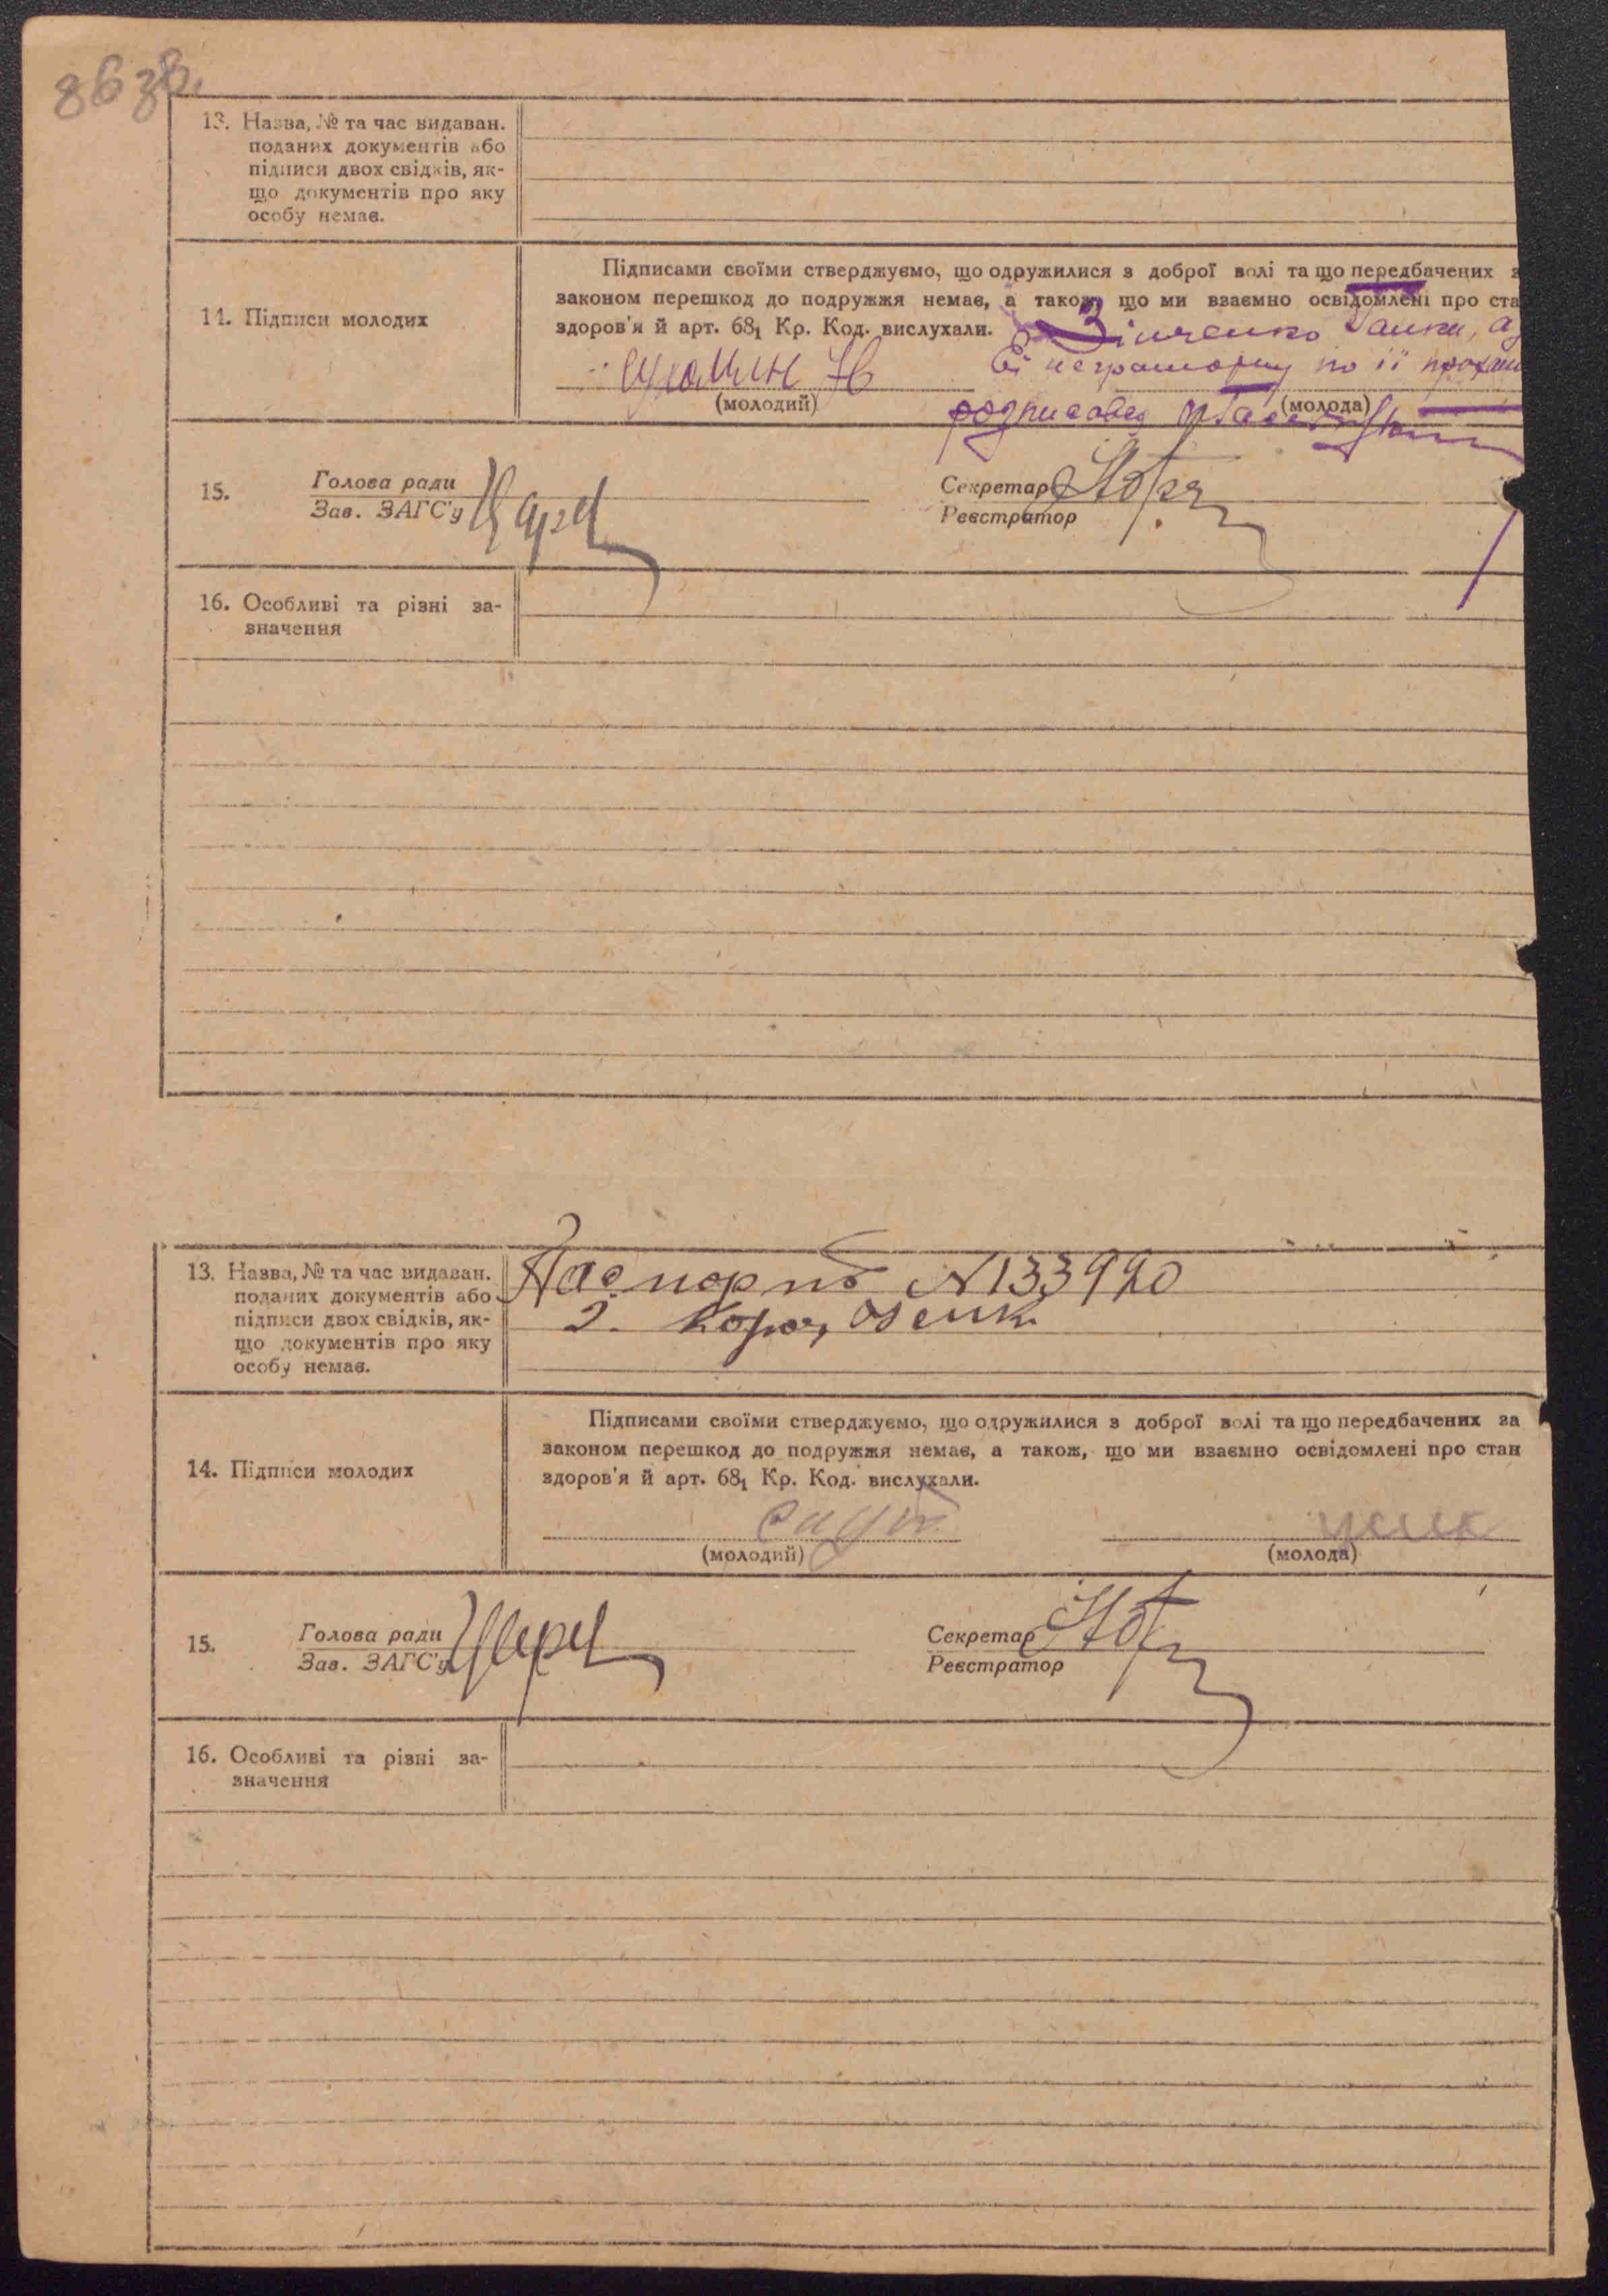 13. Назва, № та час видаван.
поданих документів або
підписи двох свідків, як-
що документів про яку
особу немає.
Підписами своїми стверджуємо, що одружилися з доброї волі та що передбачених з
законом перешкод до подружжя немає, а також, що ми взаємно освідомлені про ста
здоров'я й арт. 68₁ Кр. Код. вислухали.
14. Підписи молодих
Зінченко Ганни, а
неграмотну по її прохан
(молодий)
(молода)
15.
Голова ради
Зав. ЗАГС'у
Секретар
Реєстратор
16. Особливі та різні за-
значення
13. Назва, № та час видаван.
поданих документів або
підписи двох свідків, як-
що документів про яку
особу немає.
Паспорт N133990
Підписами своїми стверджуємо, що одружилися з доброї волі та що передбачених за
законом перешкод до подружжя немає, а також, що ми взаємно освідомлені про стан
здоров'я й арт. 68₁ Кр. Код. вислухали.
14. Підписи молодих
(молодий)
(молода)
15.
Голова ради
Зав. ЗАГС'у
Секретар
Реєстратор
16. Особливі та різні за-
значення